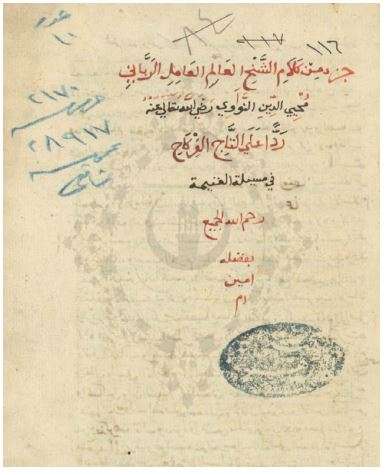 عدد
١٠
١١٧
١١٦
جزء من كلام الشيخ العالم العامل الرباني
محيي الدين النووي رضي الله تعالى عنه
ردا على التاج الفركاح
في مسئلة الغنيمة
رحم الله الجميع
بفضله
امين
ام
٢١٧٠
٢٨٩١٧